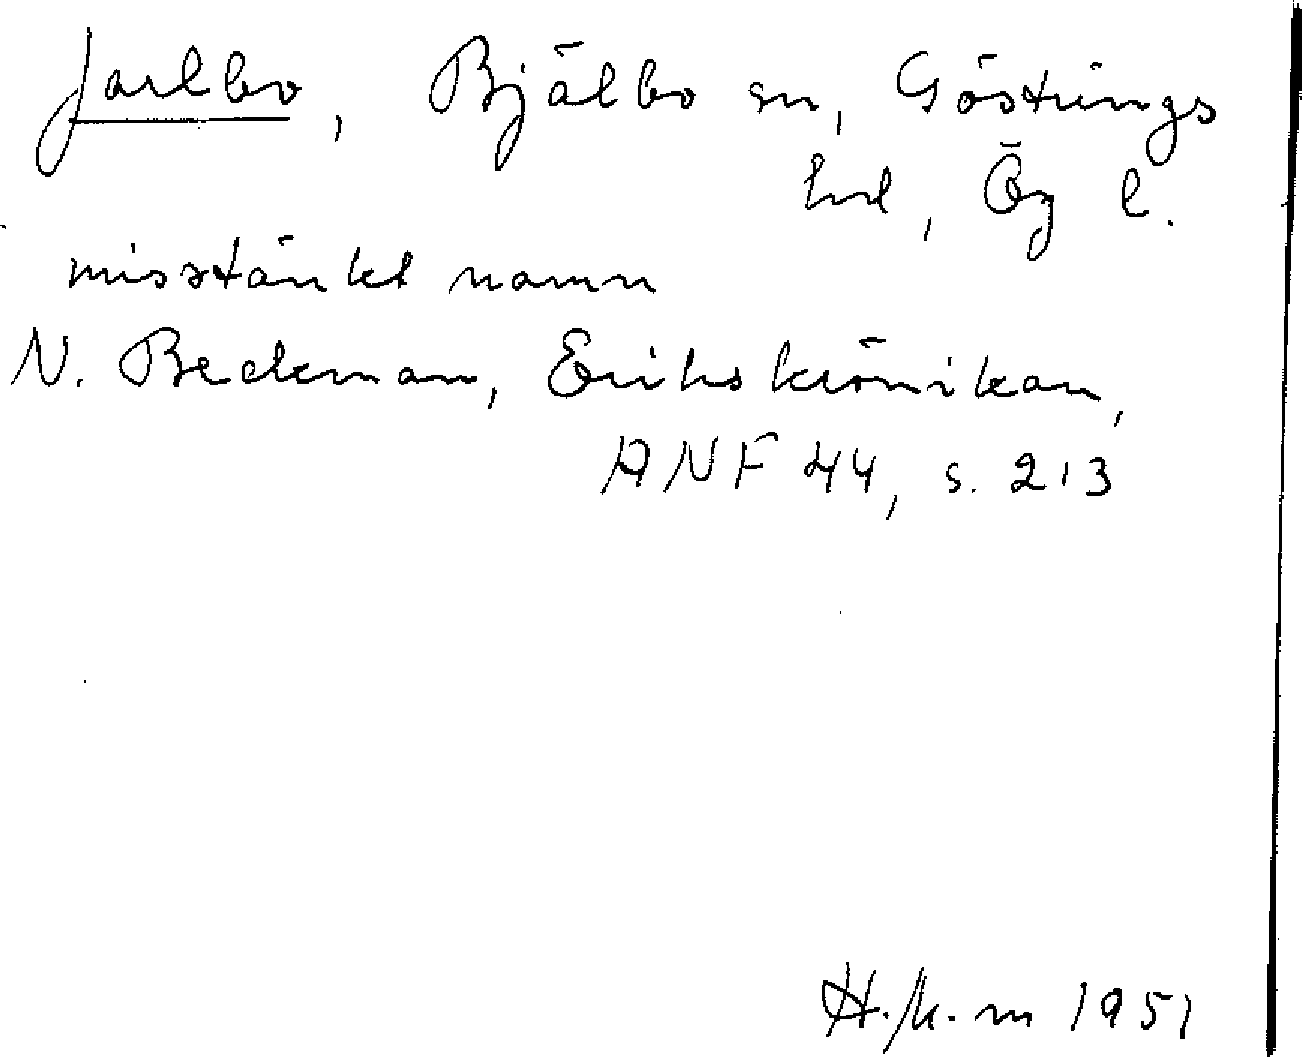 Jarlbo, Bjälbo sn, Göstrings
hd, Ög l.
misstänkt namn
N. Beckman, Erikskrönikan,
ANF 44, s. 213
1951